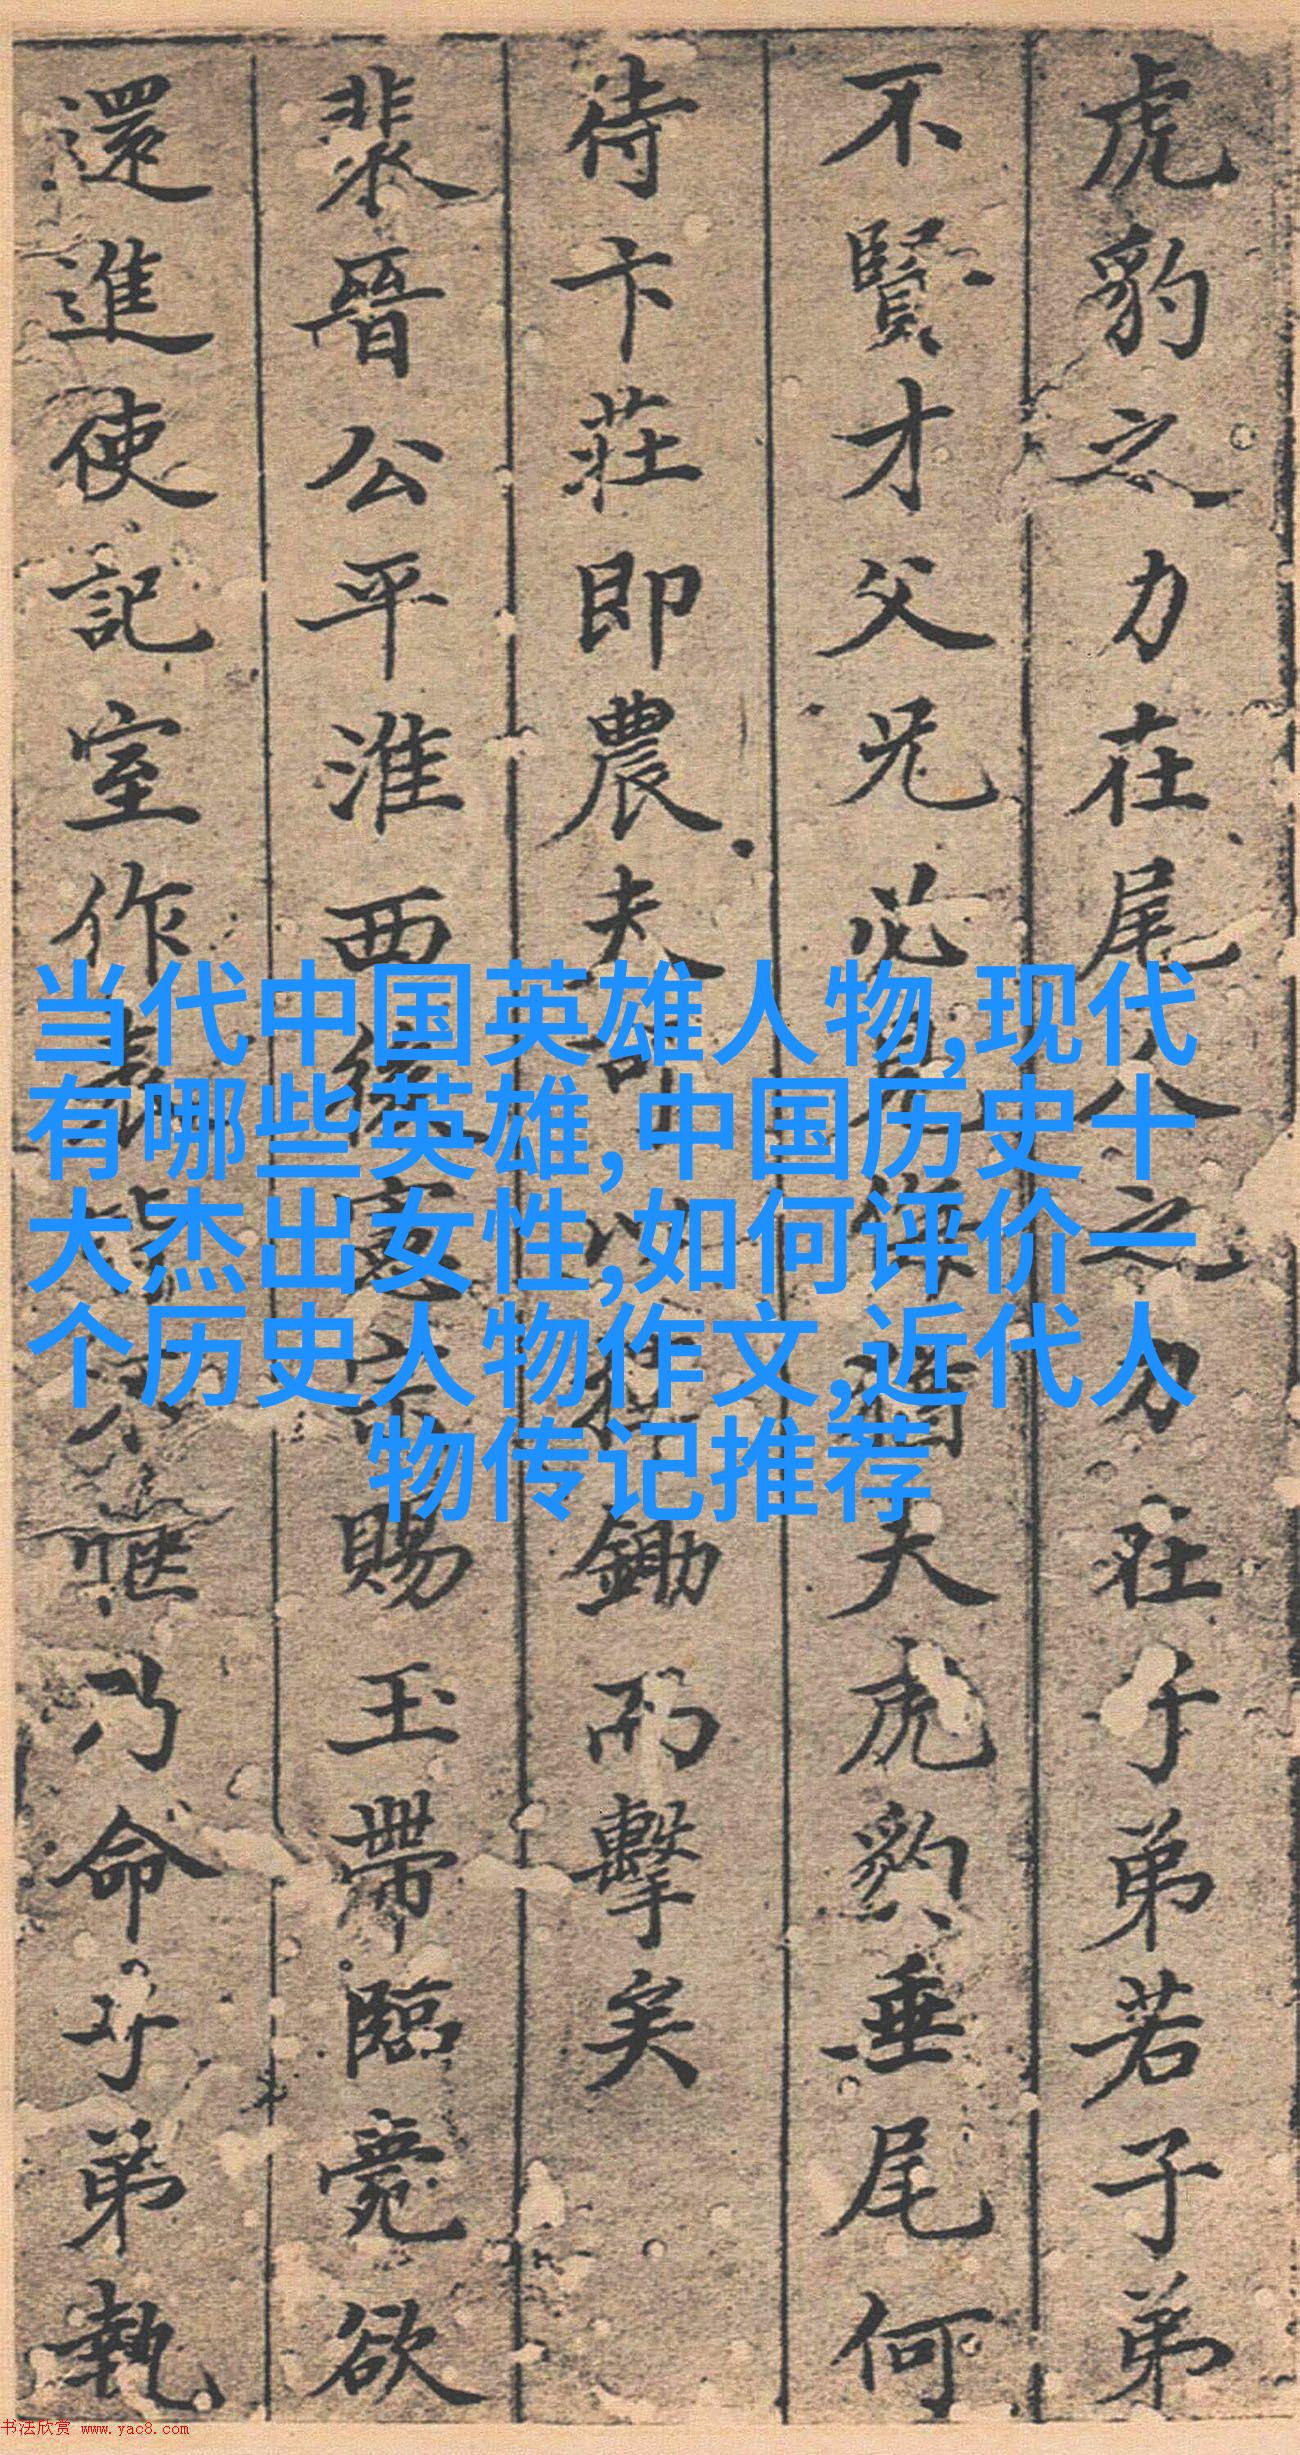 虎豹之力在尾八之力在子弟若子弟
不賢才父兄必大虎豹垂尾何
待卞莊即農夫可以鋤而擊矣
裴晉公平淮西後憲宗賜玉帶臨薨欲
還進使記室作表皆不愜乃命子弟執
当代中国英雄人物,现代
有哪些英雄,中国历史十
大杰出女性,如何评价一
个历史人物作文,近代人
物传记推荐
书法欣赏 www.yac8.com